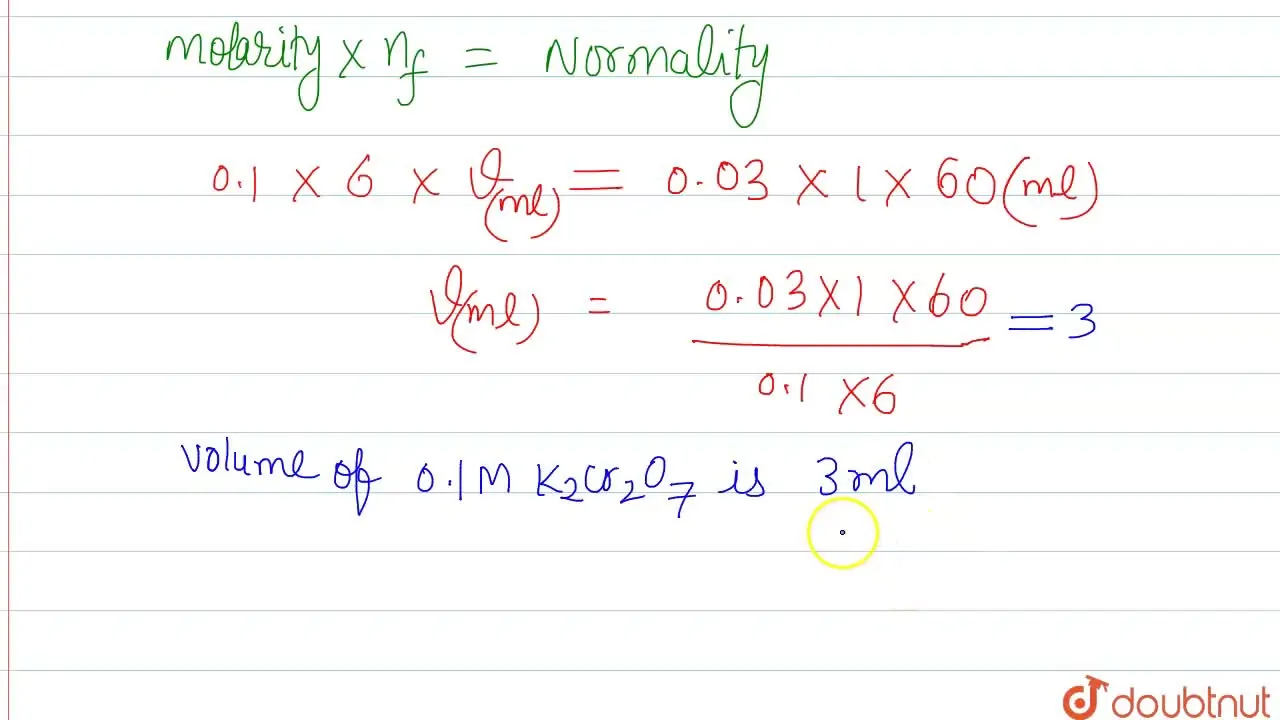 molarity × nf = Normality
0.1 × 6 × V(ml) = 0.03 × 1 × 60(ml)
V(ml) = 0.03 × 1 × 60 = 3
0.1 × 6
volume of 0.1 M K2Cr2O7 is 3 ml
doubtnut